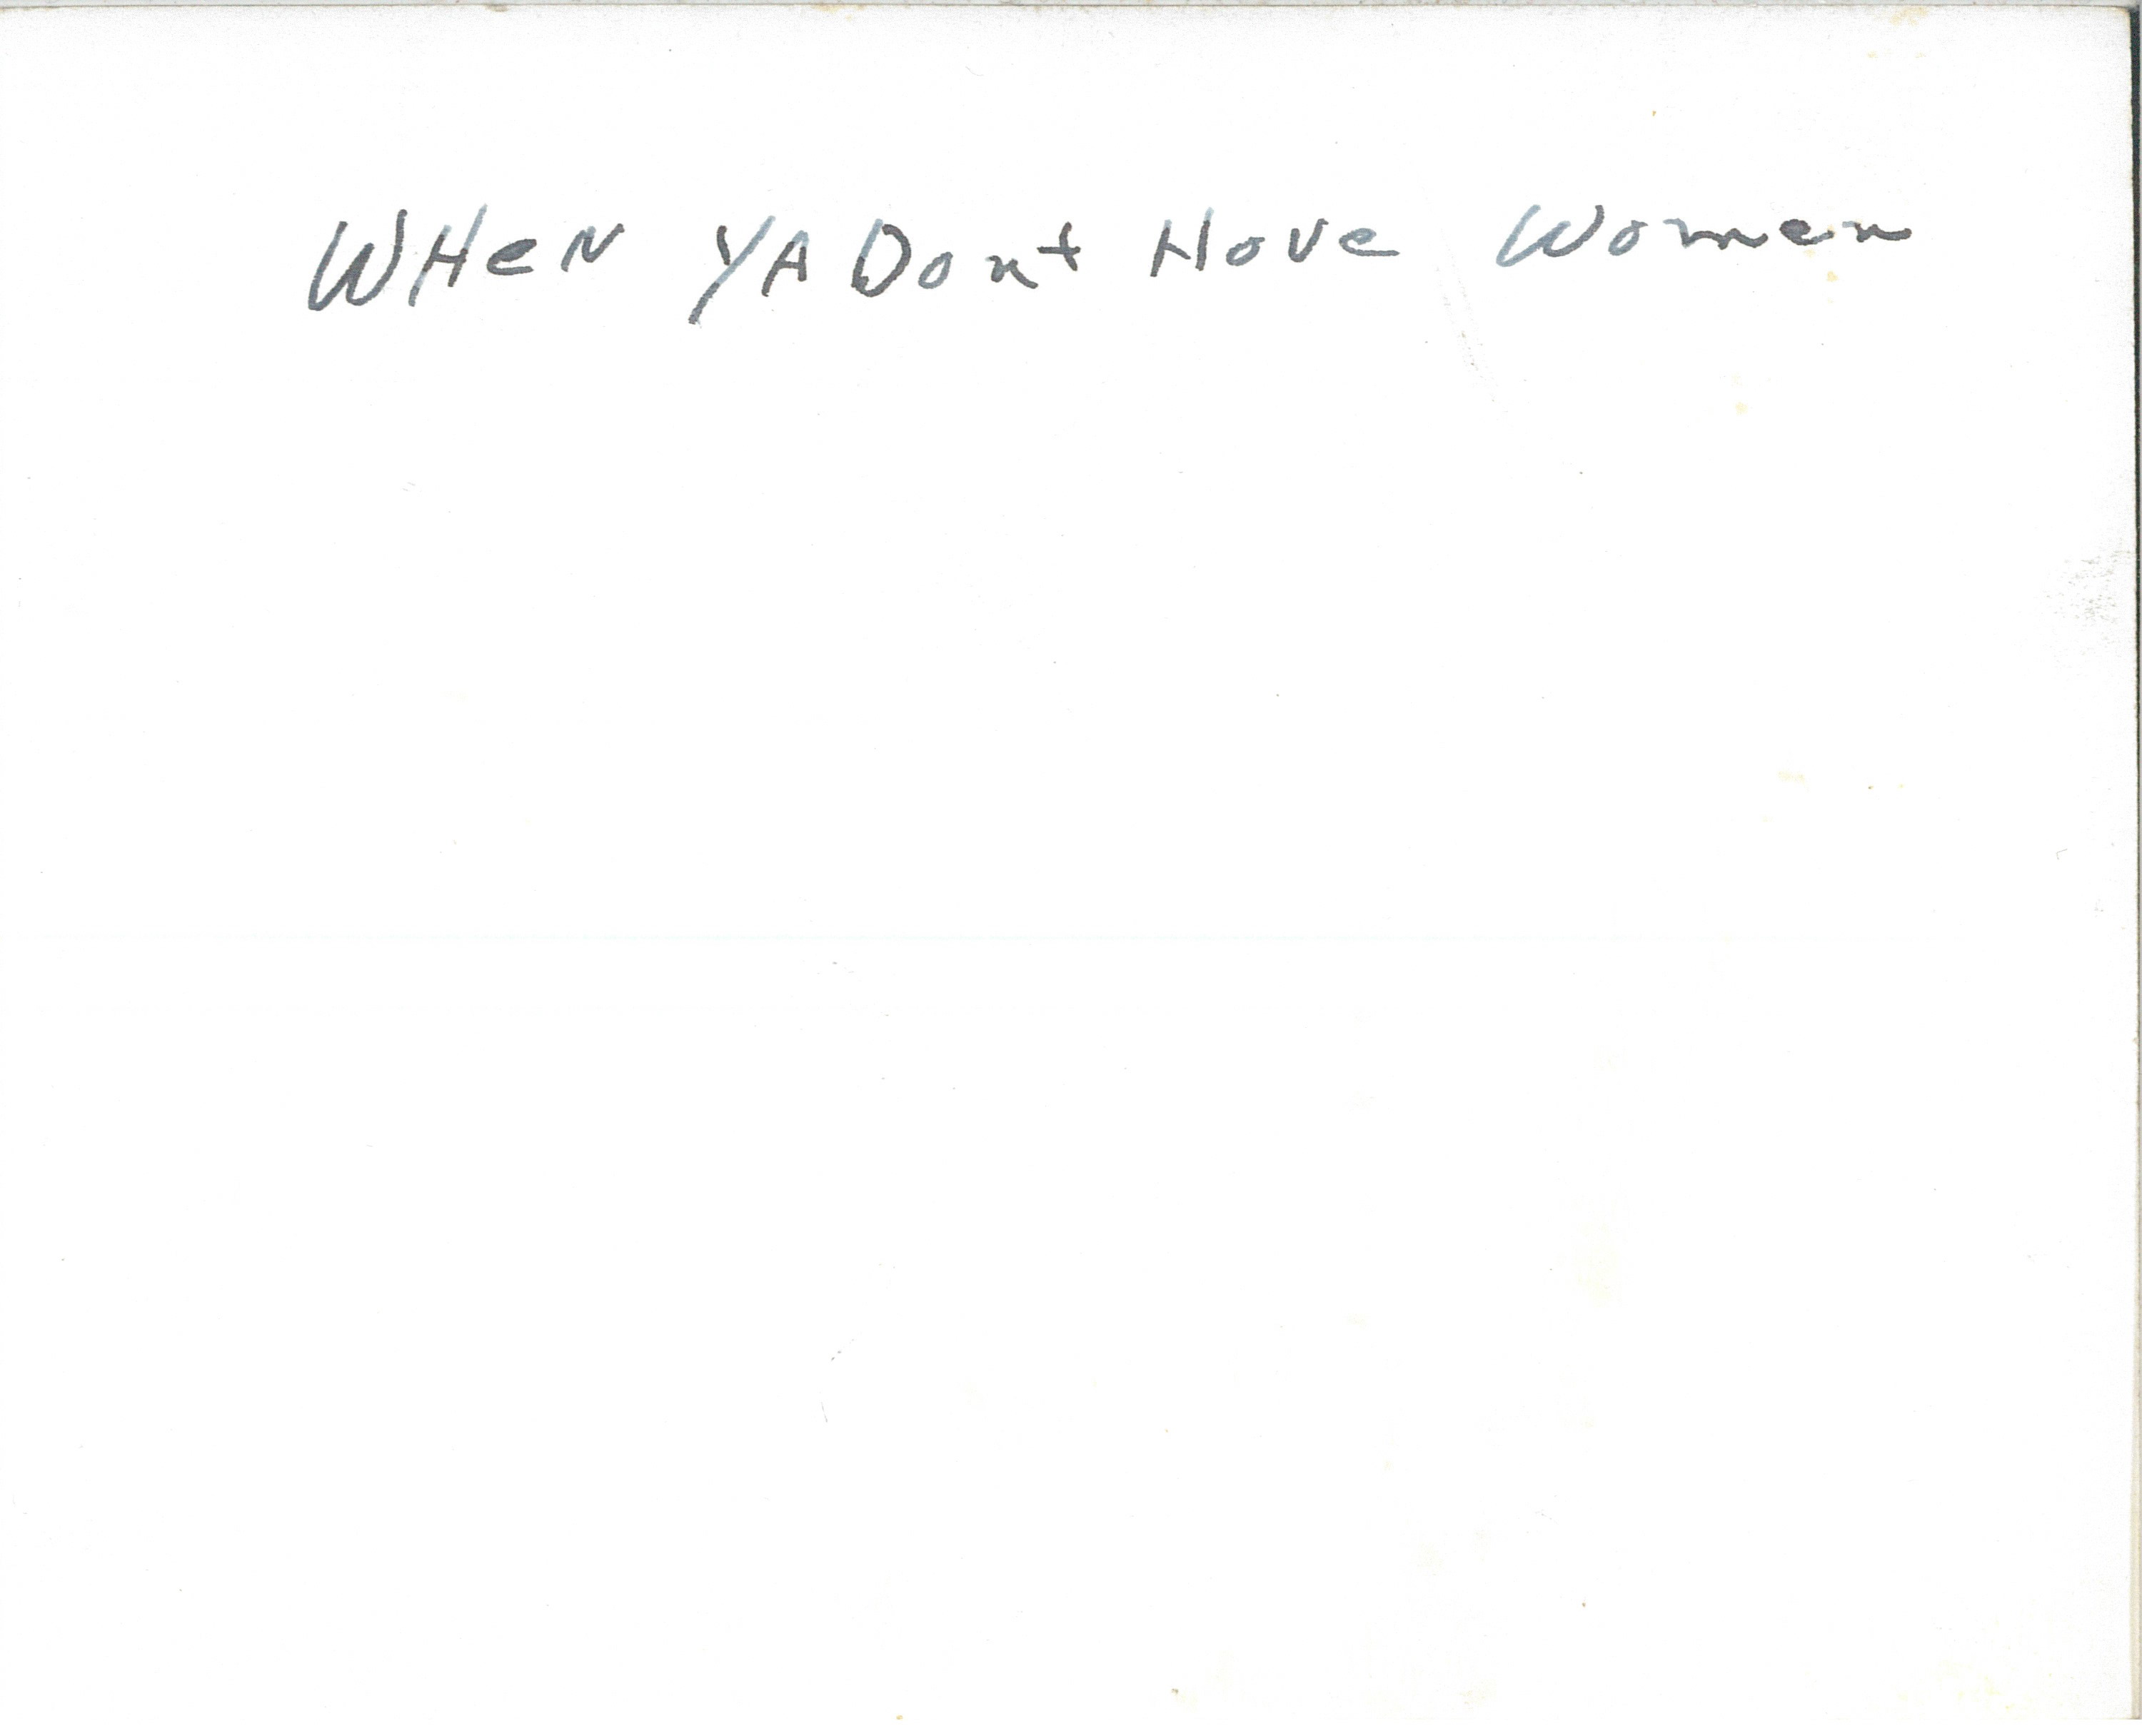 WHeN YA Dont Have Women